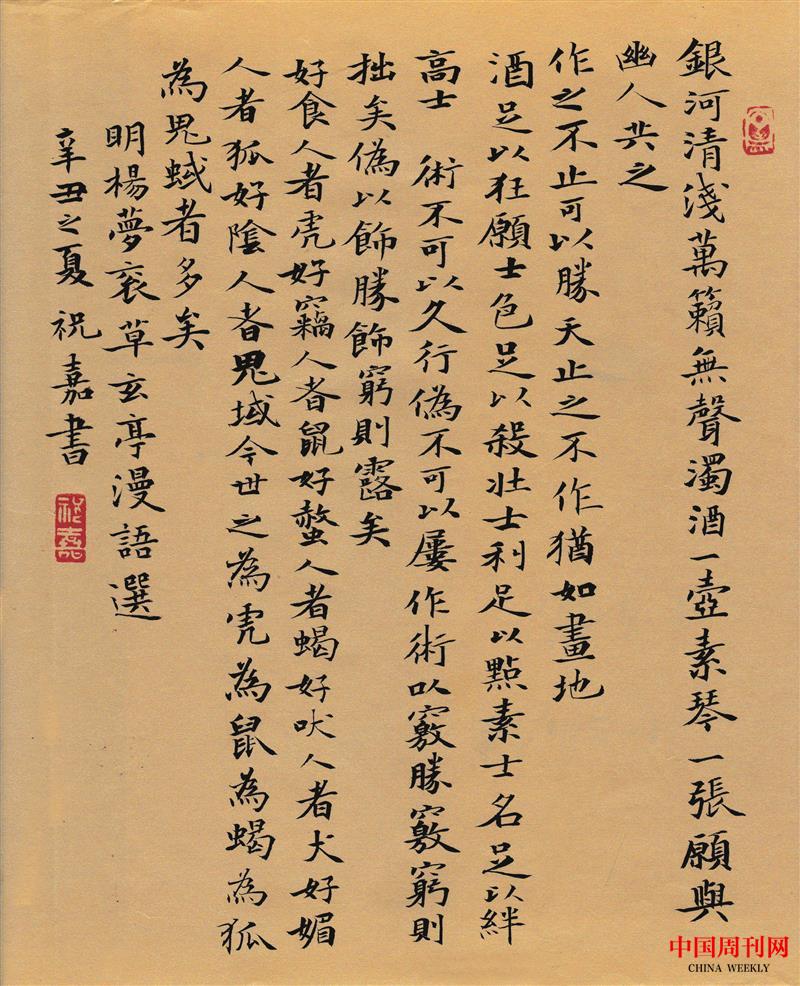 銀河清淺萬籟無聲濁酒一壺素琴一張願與
幽人共之
作之不止可以勝天止之不作猶如畫地
酒足以狂願士色足以殺壯士利足以點素士名足以絆
高士 術不可以久行偽不可以屢作術以竅勝竅窮則
拙矣偽以飾勝飾窮則露矣
好食人者虎好竊人者鼠好螫人者蝎好吠人者犬好媚
人者狐好陰人者鬼蜮今世之為虎為鼠為蝎為狐
為鬼蜮者多矣
明楊夢袞草玄亭漫語選
辛丑之夏 祝嘉書
祝嘉
中国周刊网
CHINA WEEKLY